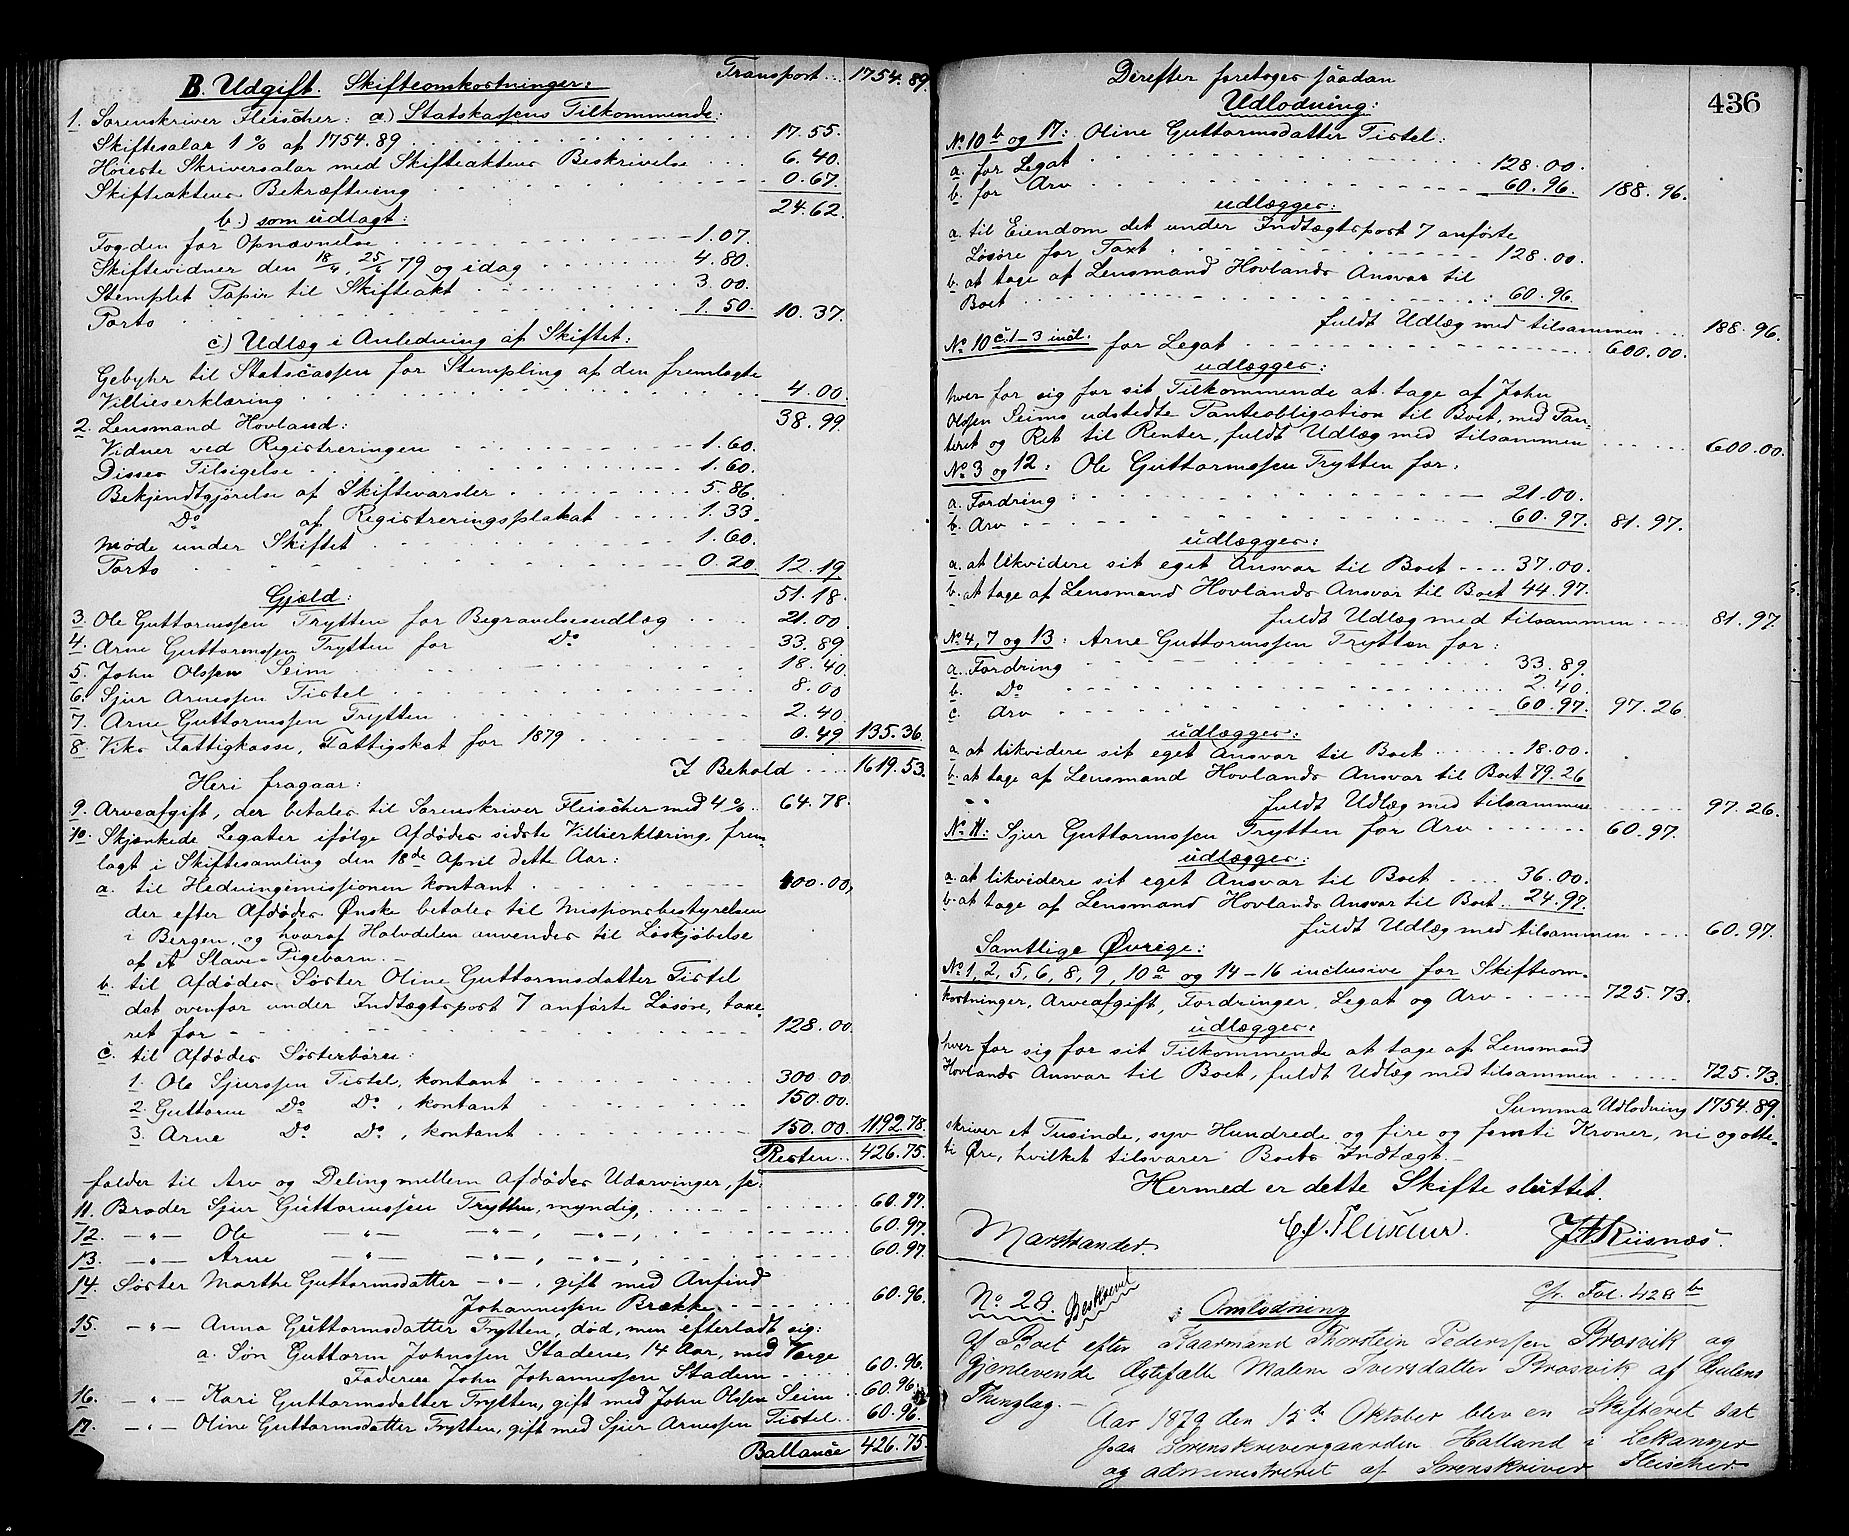 Transport... 1754.89.
B. Udgift. Skifteomkostninger:
1. Sorenskriver Fleischer: a) Statskassens Tilkommende:
Skiftesalar 1 % af 1754.89 17.55.
Høieste Skriversalar med Skifteaktens Beskrivelse 6.40.
Skifteaktens Bekræftning 0.67.
24.62.
b.) som udlagt:
Fogden for Opnævnelse 1.07.
Skiftevidner den 18/4, 25/6 79 og idag 4.80.
Stemplet Papir til Skifteakt 3.00.
Porto 1.50. 10.37.
c.) Udlæg i Anledning af Skiftet:
Gebyhr til Statscassen for Stempling af den fremlagte
Villieserklæring 4.00.
38.99.
2. Lensmand Hovland:
Vidner ved Registreringen 1.60.
Disses Tilsigelse 1.60.
Bekjendtgjørelse af Skiftevarsler 5.86.
Do af Registreringsplakat 1.33.
Møde under Skiftet 1.60.
Porto 0.20 12.19
Gjæld: 51.18.
3. Ole Guttormssen Trytten for Begravelsesudlæg 21.00.
4. Arne Guttormssen Trytten for Do 33.89
5. John Olssen Seim 18.40.
6. Sjur Arnessen Tistel 8.00
7. Arne Guttormssen Trytten 2.40.
8. Viks Fattigkasse, Fattigskat for 1879 0.49 135.36.
I Behold 1619.53.
Heri fragaar:
9. Arveafgift, der betales til Sorenskriver Fleischer med 4% 64.78.
10. Skjænkede Legater ifølge Afdødes sidste Villieserklæring, frem-
lagt i Skiftesamling den 18de April dette Aar:
a. til Hedningemissionen kontant 400.00,
der efter Afdødes Ønske betales til Missionsbestyrelsen
i Bergen, og hvoraf Halvdelen anvendes til Løskjøbelse
af et Slave-Pigebarn. —
b. til Afdødes Søster Oline Guttormsdatter Tistel
det ovenfor under Indtægtspost 7 anførte Løsøre, taxe-
ret for 128.00.
c. til Afdødes Søsterbørn:
1. Ole Sjurssen Tistel, kontant 300.00.
2. Guttorm Do Do, kontant 150.00.
3. Arne Do Do, kontant 150.00. 1192.78.
Resten.. 426.75.
falder til Arv og Deling mellem Afdødes Udarvinger, s:
11. Broder Sjur Guttormssen Trytten, myndig, 60.97.
12. —"— Ole —"— —"—, —"—, 60.97.
13. —"— Arne " —"—, —"—, 60.97.
14. Søster Marthe Guttormsdatter —"—, gift med Anfind
Johannessen Brække 60.96.
15. —"— Anna Guttormsdatter Trytten, død, men efterladt sig:
a. Søn Guttorm Johnssen Stadem, 14 Aar, med Værge
Faderen John Johannessen Stadem 60.96.
16. —"— Kari Guttormsdatter Trytten, gift med John Olssen Seim 60.96.
17. —"— Oline Guttormsdatter Trytten, gift med Sjur Arnessen Tistel.. 60.96.
Ballance 426.75.
436
Derefter foretoges saadan
Udlodning:
No 10 b og 17: Oline Guttormsdatter Tistel:
a. for Legat 128.00.
b. for Arv 60.96. 188.96.
udlægges:
a. til Eiendom det under Indtægtspost 7 anførte
Løsøre for Taxt 128.00.
b. at tage af Lensmand Hovlands Ansvar til
Boet 60.96.
fuldt Udlæg med tilsammen 188.96.
No 10 c. 1-3 incl: for Legat 600.00.
udlægges:
hver for sig for sit Tilkommende at tage af John
Olssen Seims udstedte Panteobligation til Boet, med Pan-
teret og Ret til Renter, fuldt Udlæg med tilsammen 600.00.
No 3 og 12: Ole Guttormssen Trytten for:
a. Fordring 21.00.
b. Arv 60.97. 81.97.
udlægges:
a. at likvidere sit eget Ansvar til Boet 37.00.
b. at tage af Lensmand Hovlands Ansvar til Boet 44.97.
fuldt Udlæg med tilsammen 81.97.
No 4, 7 og 13: Arne Guttormssen Trytten for:
a. Fordring 33.89.
b. Do 2.40.
c. Arv 60.97. 97.26.
udlægges:
a. at likvidere sit eget Ansvar til Boet 18.00.
b. at tage af Lensmand Hovlands Ansvar til Boet 79.26
fuldt Udlæg med tilsammen 97.26.
No 11: Sjur Guttormssen Trytten for Arv 60.97.
udlægges:
a. at likvidere sit eget Ansvar til Boet 36.00.
b. at tage af Lensmand Hovlands Ansvar til Boet.. 24.97.
fuldt Udlæg med tilsammen 60.97.
Samtlige Øvrige:
No 1, 2, 5, 6, 8, 9, 10 a og 14-16 inclusive for Skifteom-
kostninger, Arveafgift, Fordringer, Legat og Arv 725.73.
udlægges:
hver for sig for sit Tilkommende at tage af Lensmand
Hovlands Ansvar til Boet, fuldt Udlæg med tilsammen 725.73.
Summa Udlodning 1754.89.
skriver et Tusinde, syv Hundrede og fire og femti Kroner, ni og otte-
ti Øre, hvilket tilsvarer Boets Indtægt. —
Hermed er dette Skifte sluttet.
Marstrander. C. J. Fleischer. J. A. Riisnæs.
No 28. Beskrevet Omlodning Cfr. Fol. 428 b
af Boet efter Gaarmand Thorstein Pederssen Brosvik og
Gjenlevende Ægtefælle Malene Iversdatter Brosvik af Gulens
Thinglag. —
Aar 1879 den 15de Oktober blev en Skifteret sat
paa Sorenskrivergaarden Halland i Lekanger
og administreret af Sorenskriver Fleischer